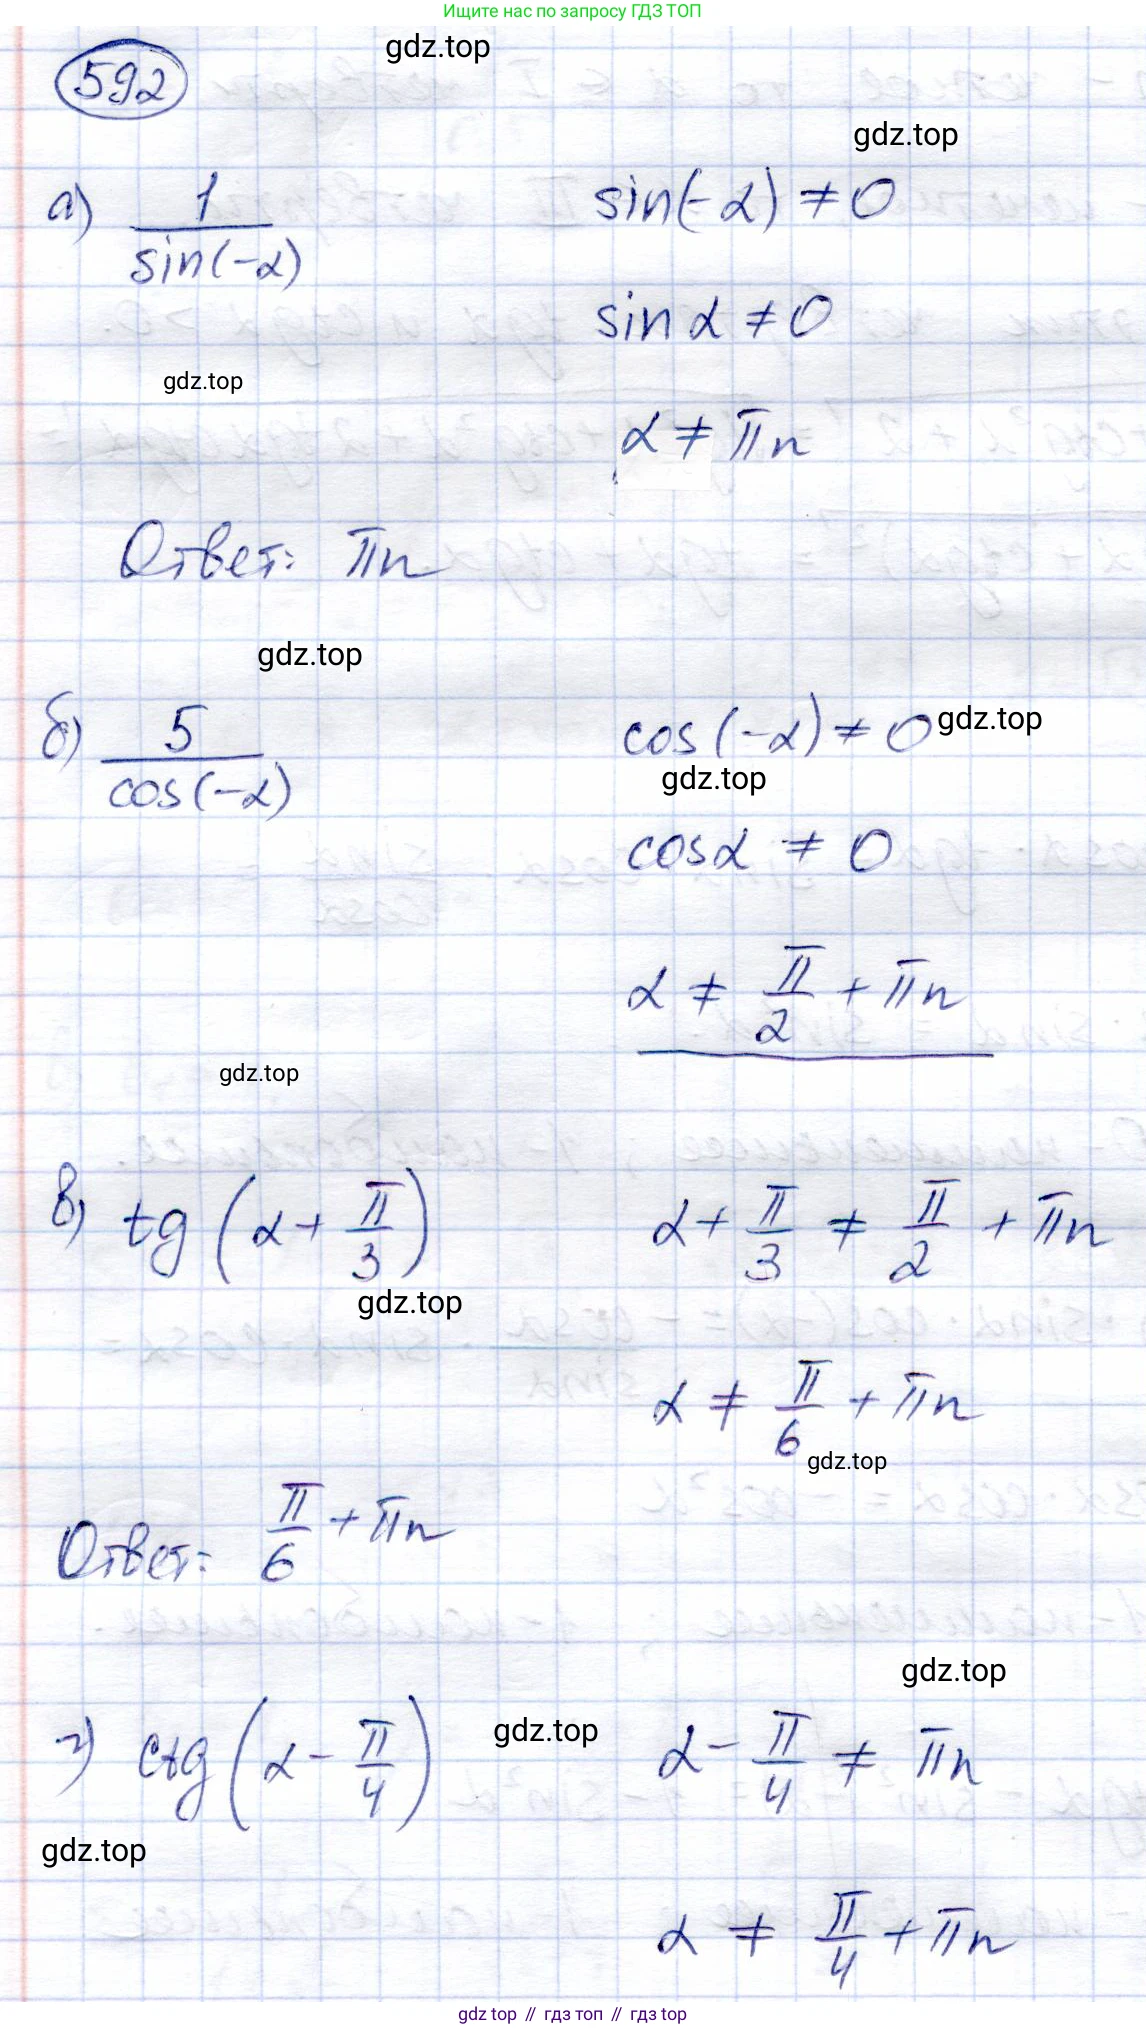 Ищите нас по запросу ГДЗ ТОП
gdz.top
592
gdz.top
а) 1/sin(-α)  sin(-α) ≠ 0
sin α ≠ 0
gdz.top
α ≠ πn
Ответ: πn
gdz.top
б) 5/cos(-α)  cos(-α) ≠ 0 gdz.top
gdz.top
cosα ≠ 0
α ≠ π/2 + πn
gdz.top
в) tg(α + π/3)  α + π/3 ≠ π/2 + πn
gdz.top
α ≠ π/6 + πn
gdz.top
Ответ: π/6 + πn
gdz.top
г) ctg(α - π/4) gdz.top α - π/4 ≠ πn
gdz.top
α ≠ π/4 + πn
gdz top // гдз топ // gdz top